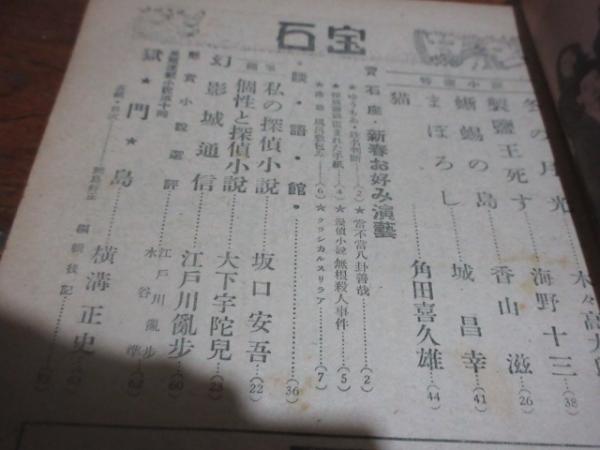 宝石
特選小説
の月光 木々高太郎
製鹽王死す 海野十三 (38)
蜥蜴の島 香山滋 (26)
まぼろし 城昌幸 (41)
猫 角田喜久雄 (44)
寶石座・新春お好み演藝 (2)
(2) ★當不當八卦善哉
(4) ★探偵小説無根殺人事件 (5)
(6) ★クラシカルスリラア (7)
・談・話・館・ (36)
私の探偵小説 坂口安吾 (22)
個性と探偵小説 大下宇陀兒
幻影城通信 江戸川亂歩
懸賞小説選評 江戸川亂歩 水谷準
獄★門★島 横溝正史
編輯後記